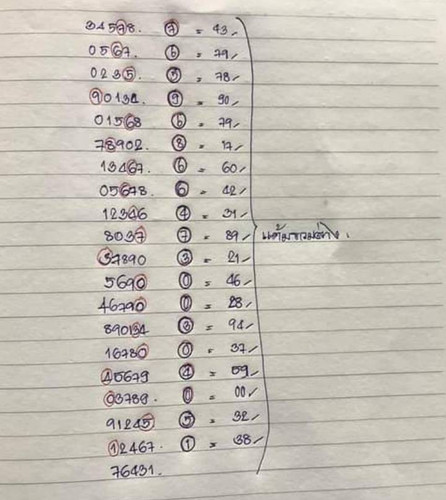 34578. 7 = 43
0567. 6 = 79
0235 5 = 78
90134 9 = 90
01568 6 = 79
78902 8 = 17
13467. 6 = 60
05678. 6 = 42
12346 4 = 31
8037 7 = 89
37890 3 = 21
5690 0 = 46
46790 0 = 28
890134 3 = 94
16780 0 = 37
45679 4 = 59
03789. 0 = 00
91245 5 = 32
12467. 1 = 38
76431.